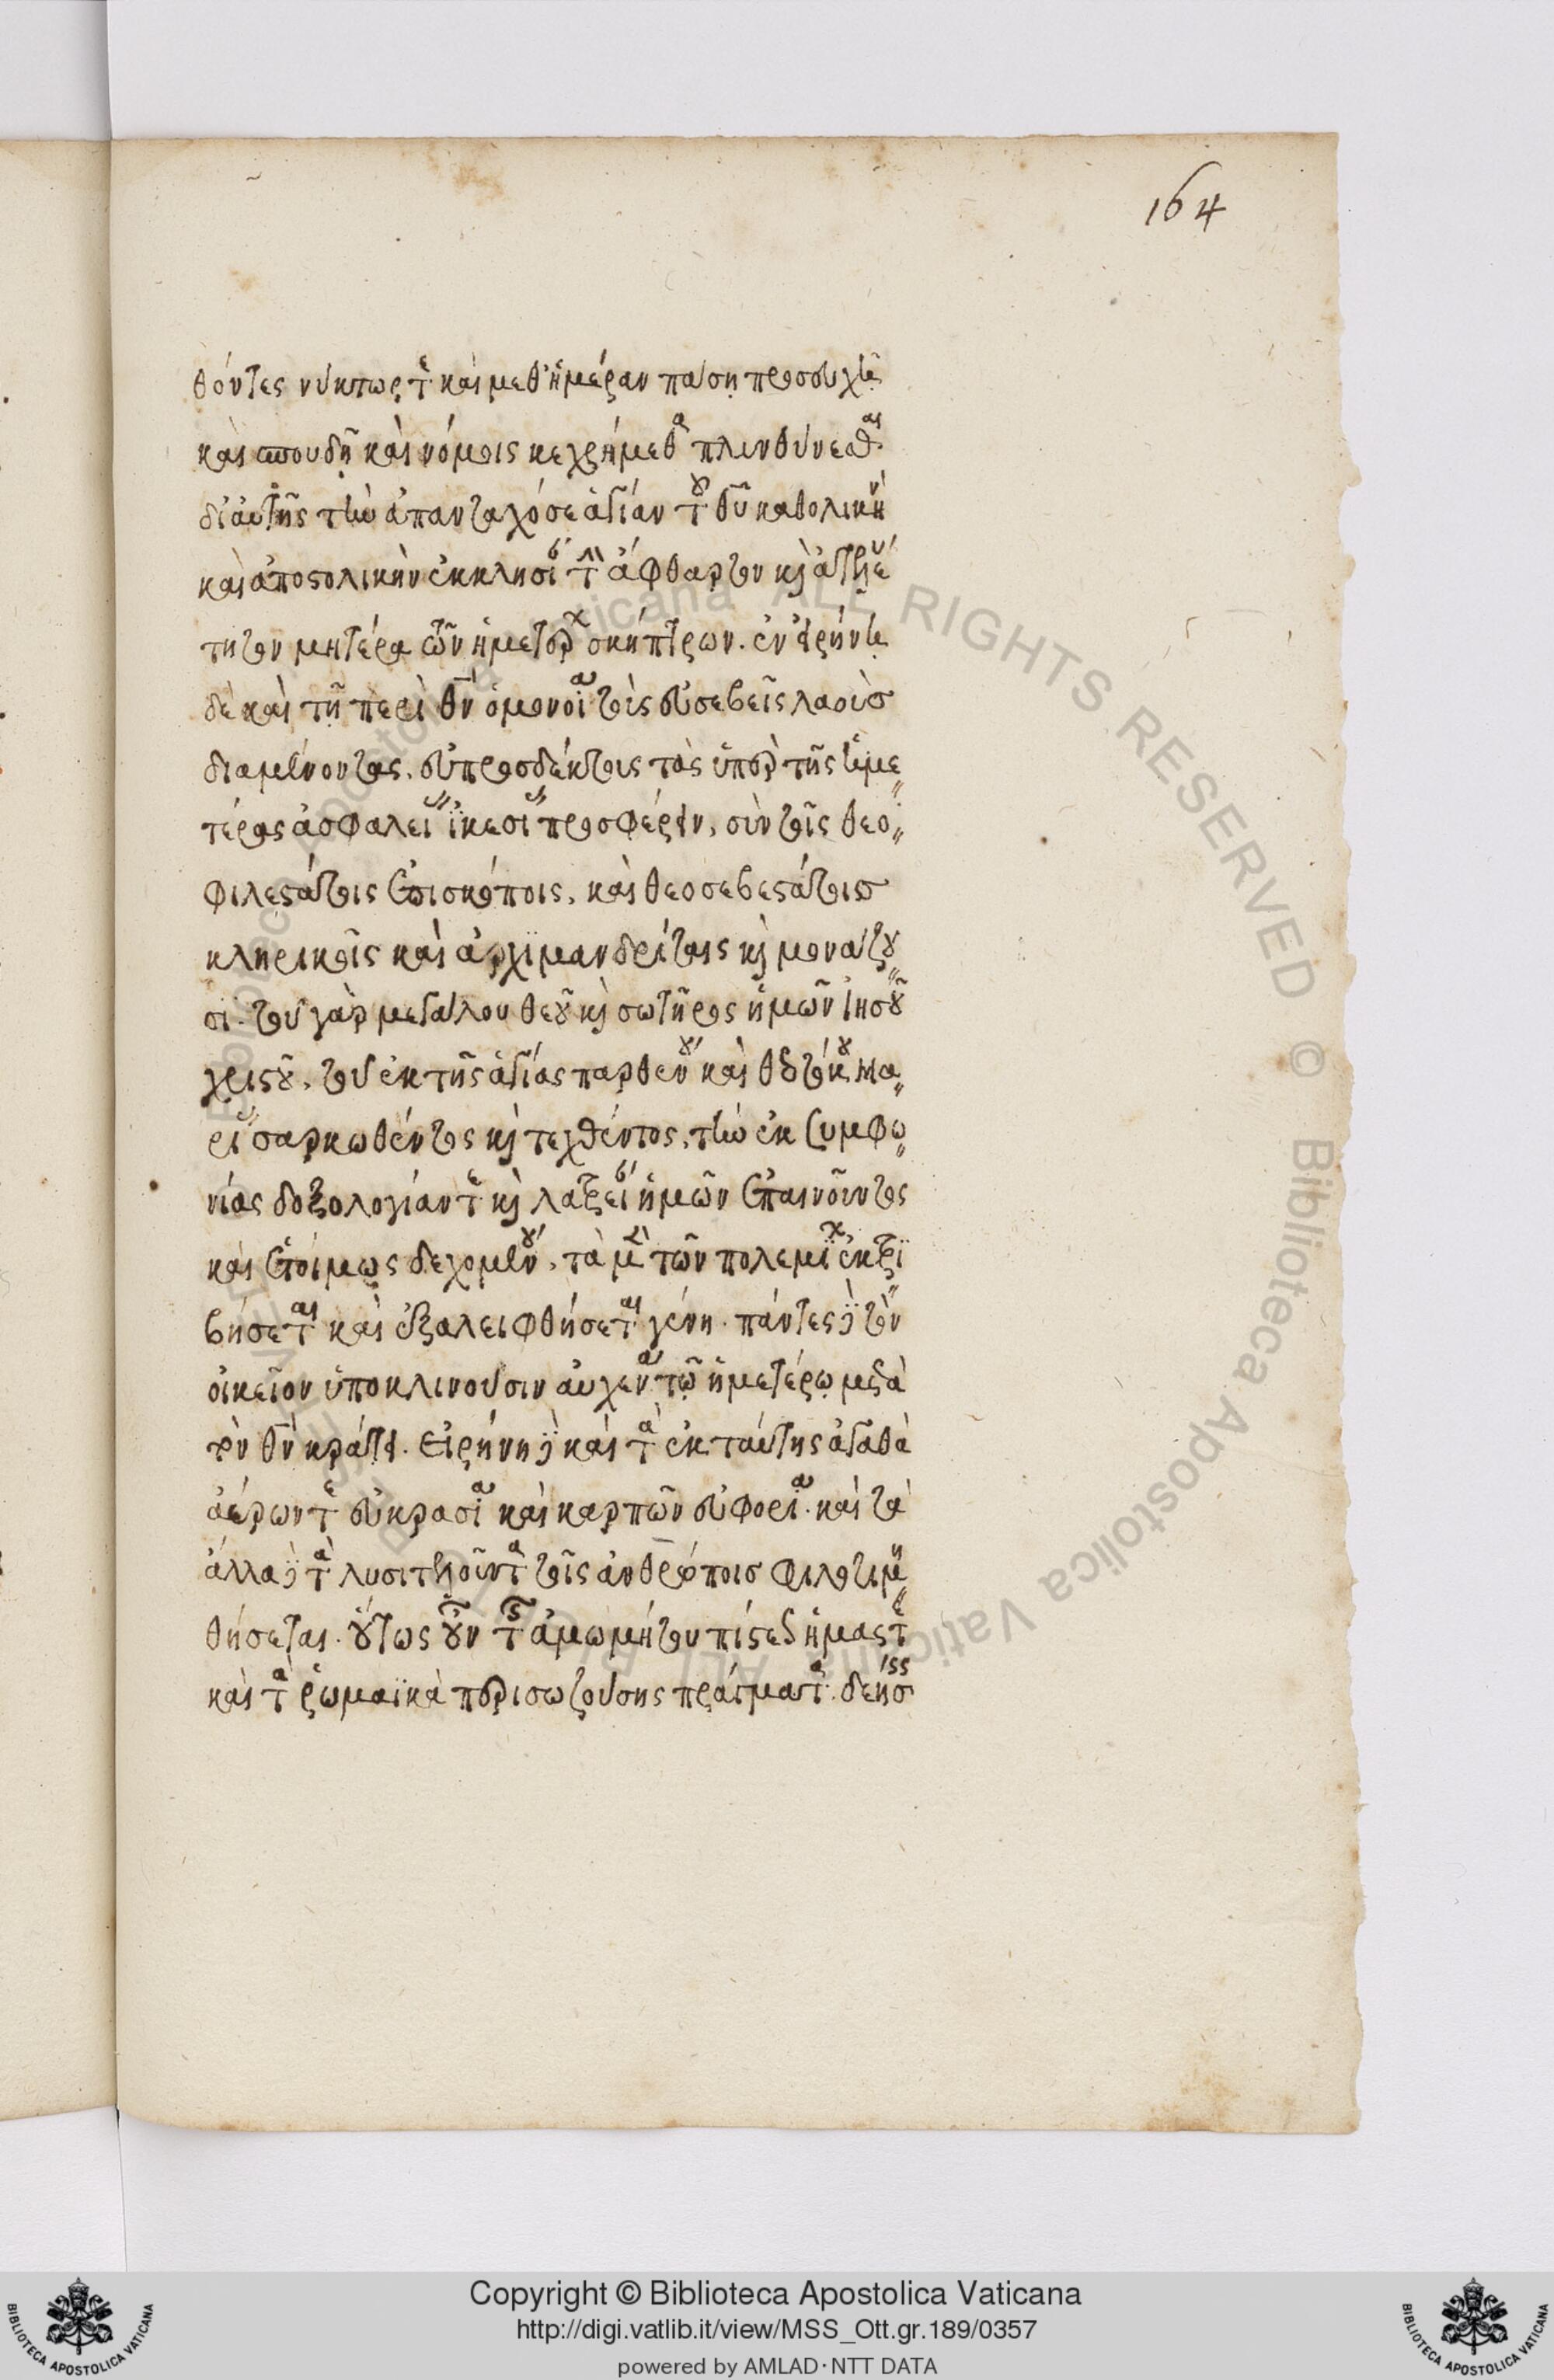 164
θόντες νύκτωρ τὲ καὶ μεθ' ἡμέραν πάσῃ προσευχῇ
καὶ σπουδῇ καὶ νόμοις κεχρήμεθα πληνθύνεσθαι
δι' αὐτῆς τὴν ἁπανταχόσε ἁγίαν τοῦ θυ καθολικὴν
καὶ ἀποστολικὴν ἐκκλησίαν τὴν ἄφθαρτον καὶ ἀήττη
τητον μητέρα τῶν ἡμετέρων σκήπτρων. ἐν εἰρήνῃ
δὲ καὶ τῇ περὶ θν ὁμονοία τοὺς εὐσεβεῖς λαοὺσ
διαμένοντας, εὐπροσδέκτους τὰς ὑπὲρ τῆς ἡμε
τέρας ἀσφαλείας ἱκεσίας προσφέρειν, σὺν τοῖς θεο
φιλεστάτοις ἐπισκόποις, καὶ θεοσεβεστάτοισ
κληρικοῖς καὶ ἀρχιμανδρίταις καὶ μονάζου
σι. τοῦ γὰρ μεγάλου θεοῦ καὶ σωτῆρος ἡμῶν ἰησοῦ
χριστοῦ, τοῦ ἐκ τῆς ἁγίας παρθένου καὶ θεοτόκου Μα
ρίας σαρκωθέντος καὶ τεχθέντος, τὴν ἐκ συμφω
νίας δοξολογίαν τὲ καὶ λατρείαν ἡμῶν ἐπαινοῦντος
καὶ ἑτοίμως δεχομένου, τὰ μὲν τῶν πολεμίων ἐκτρι
βήσεται καὶ ἐξαλειφθήσεται γένη. πάντες δὲ τὸν
οἰκεῖον ὑποκλινοῦσιν αὐχένα τῷ ἡμετέρῳ μετὰ
τὸν θν κράτει. εἰρήνη δὲ καὶ τὰ ἐκ ταύτης ἀγαθὰ
ἀέρων τὲ εὐκρασία καὶ καρπῶν εὐφορία. καὶ τὰ
ἄλλα δὲ τὰ λυσιτελοῦντα τοῖς ἀνθρώποισ φιλοτιμη
θήσεται. οὕτως οὖν τῆς ἀμωμήτου πίστεως ἡμᾶς τὲ
καὶ τὰ ῥωμαϊκὰ περισωζούσης πράγματα. δεήσεις
Copyright © Biblioteca Apostolica Vaticana
http://digi.vatlib.it/view/MSS_Ott.gr.189/0357
powered by AMLAD·NTT DATA